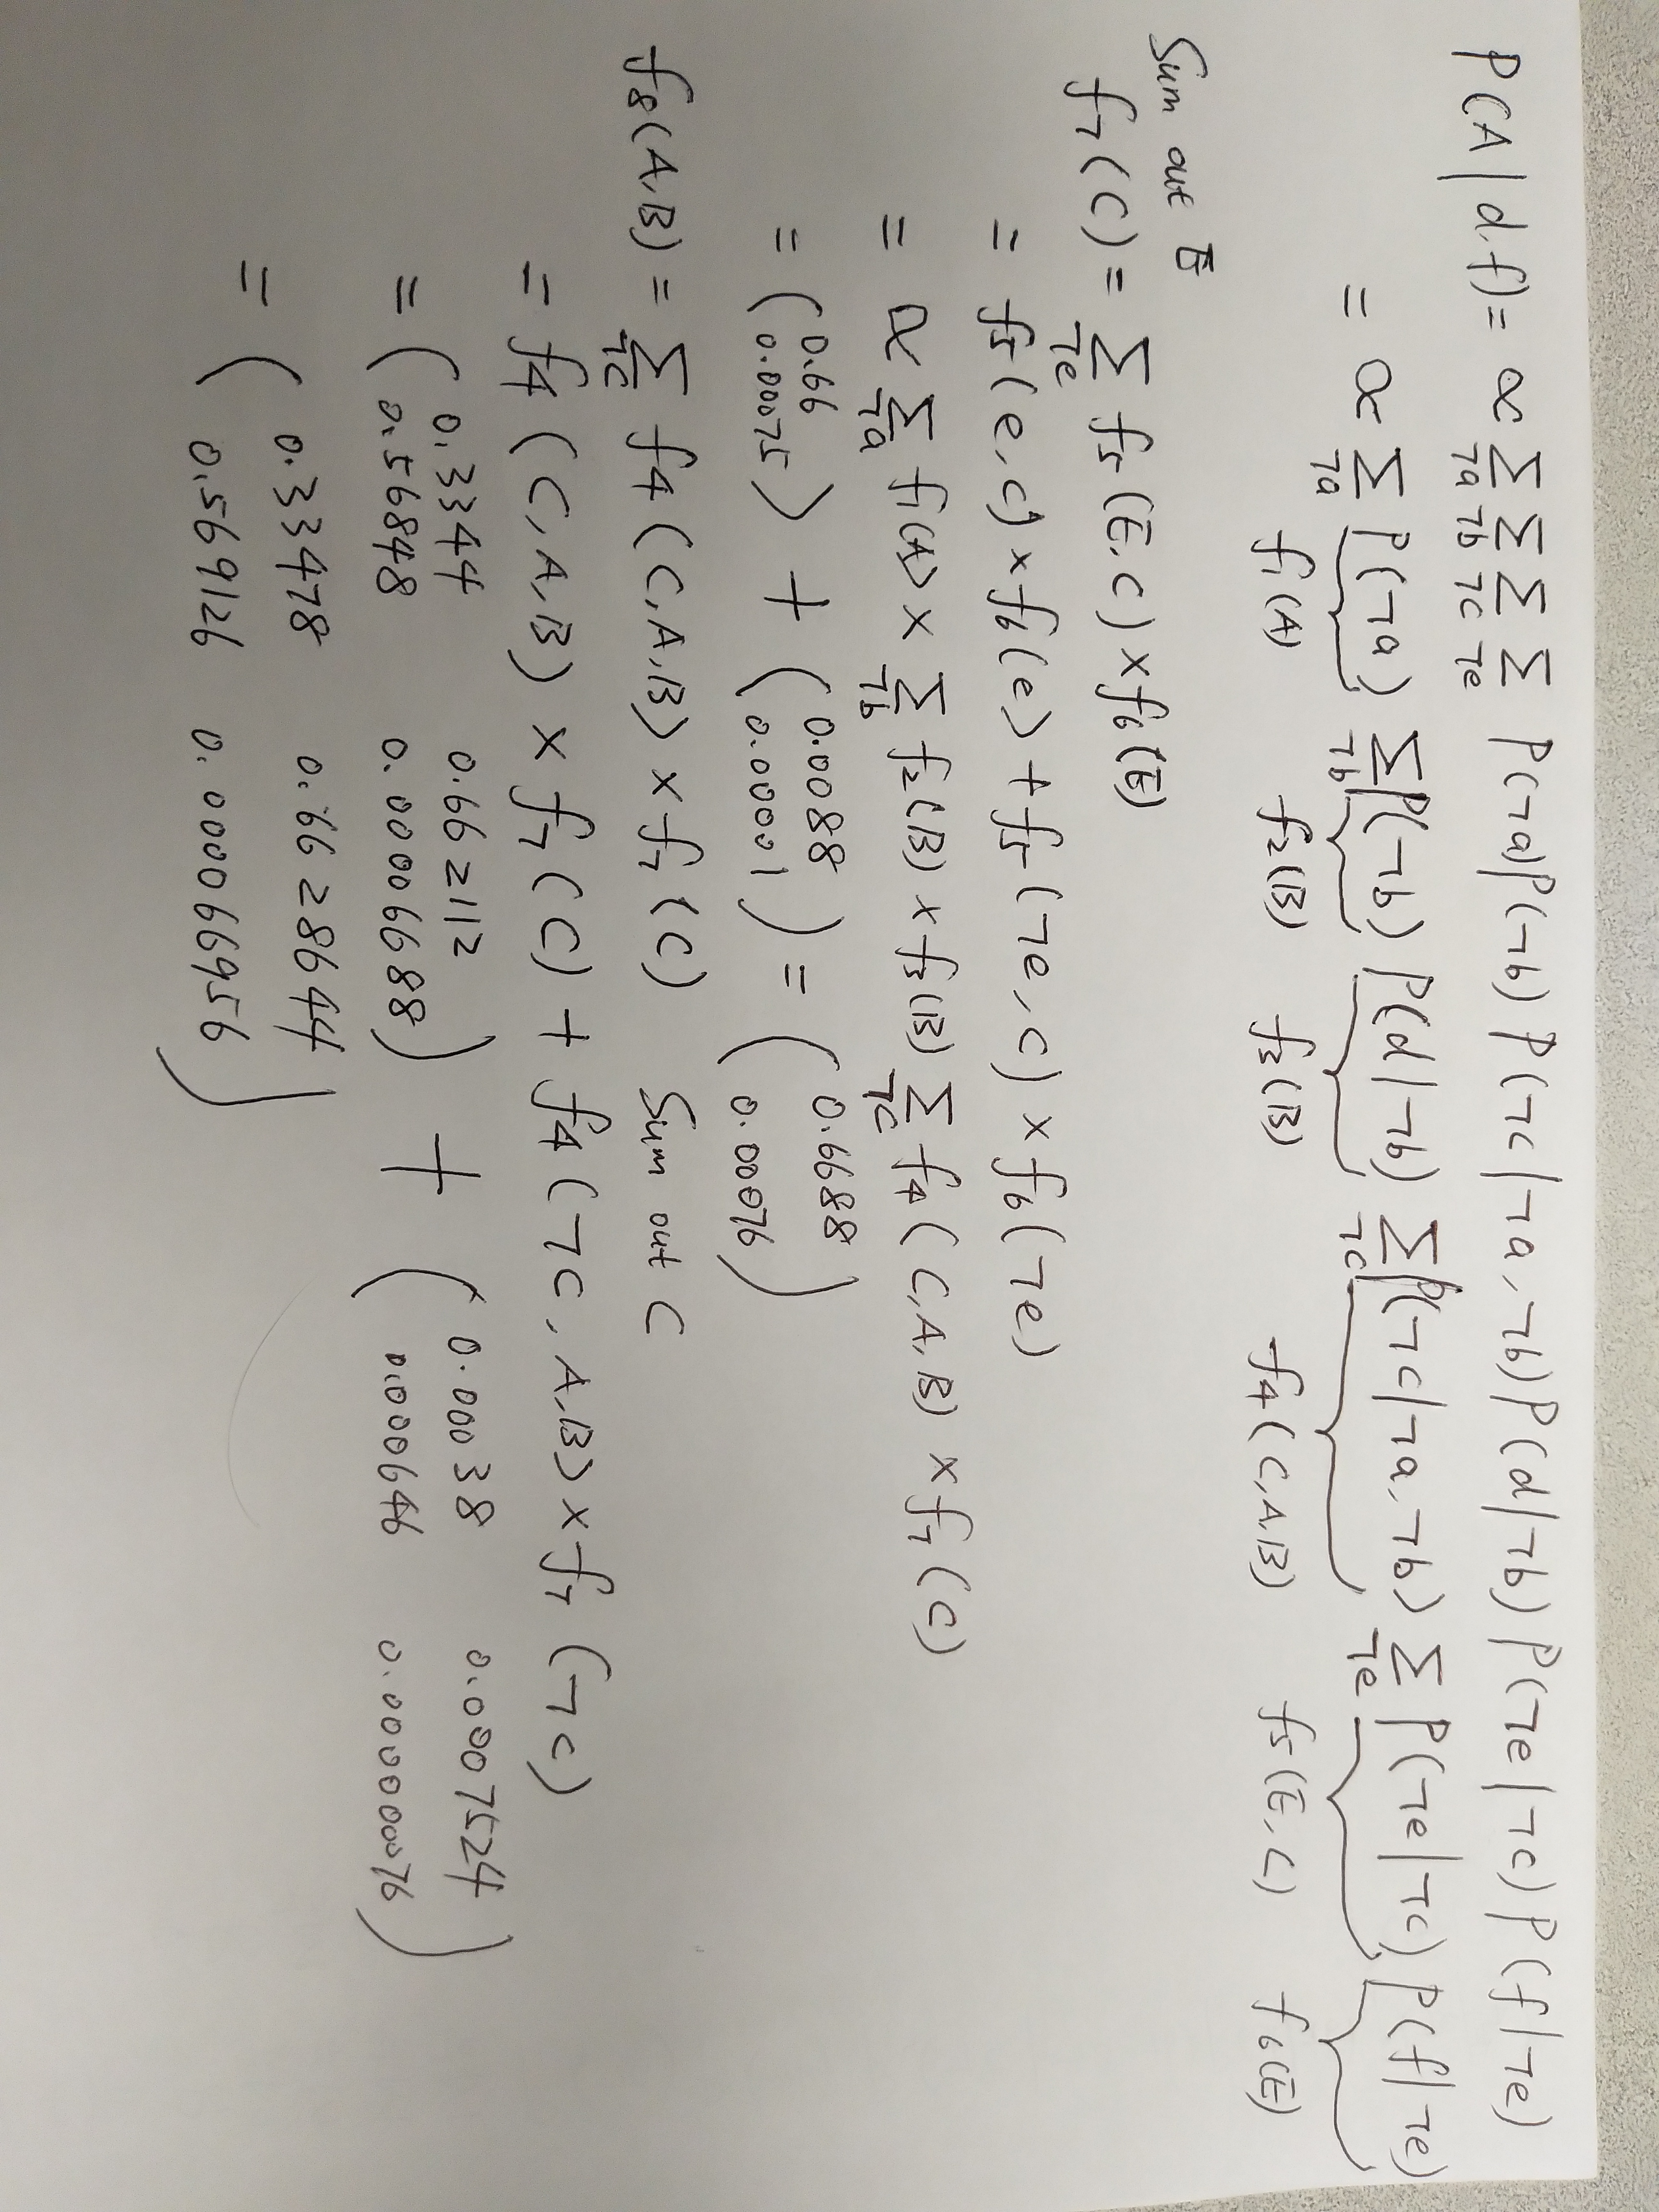 P(A|d.f)= ∝ ∑¬a ∑¬b ∑¬c ∑¬e P(¬a)P(¬b) P(¬c|¬a,¬b)P(d|¬b) P(¬e|¬c) P(f|¬e)
= ∝ ∑¬a P(¬a) ∑¬b P(¬b) P(d|¬b) ∑¬c P(¬c|¬a,¬b) ∑¬e P(¬e|¬c) P(f|¬e)
f1(A) f2(B) f3(B) f4(C,A,B) f5(E,C) f6(E)
Sum out E
f7(C) = ∑¬e f5(E,C) × f6(E)
= f5(e,c) × f6(e) + f5(¬e,c) × f6(¬e)
= ∝ ∑¬a f1(A) × ∑¬b f2(B) × f3(B) ∑¬c f4(C,A,B) × f7(C)
= ( 0.66 0.00075 ) + ( 0.0088 0.00001 ) = ( 0.6688 0.00076 )
f8(A,B) = ∑¬c f4(C,A,B) × f7(C) Sum out C
= f4(C,A,B) × f7(C) + f4(¬C,A,B) × f7(¬c)
= ( 0.3344 0.662112 ) + ( 0.00038 0.0007524 )
0.56848 0.00006688 0.000646 0.000000076
= ( 0.33478 0.6628644 )
0.569126 0.000066956